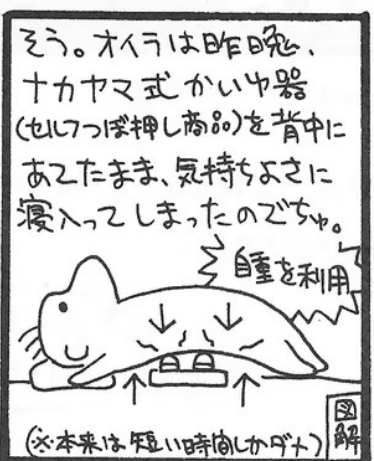 そう。オイラは昨晩、
ナカヤマ式かいゆ器
(セルフつぼ押し商品)を背中に
あてたまま、気持ちよさに
寝入ってしまったのでちゅ。
自重を利用
図解
(※本来は短い時間しかダメ)